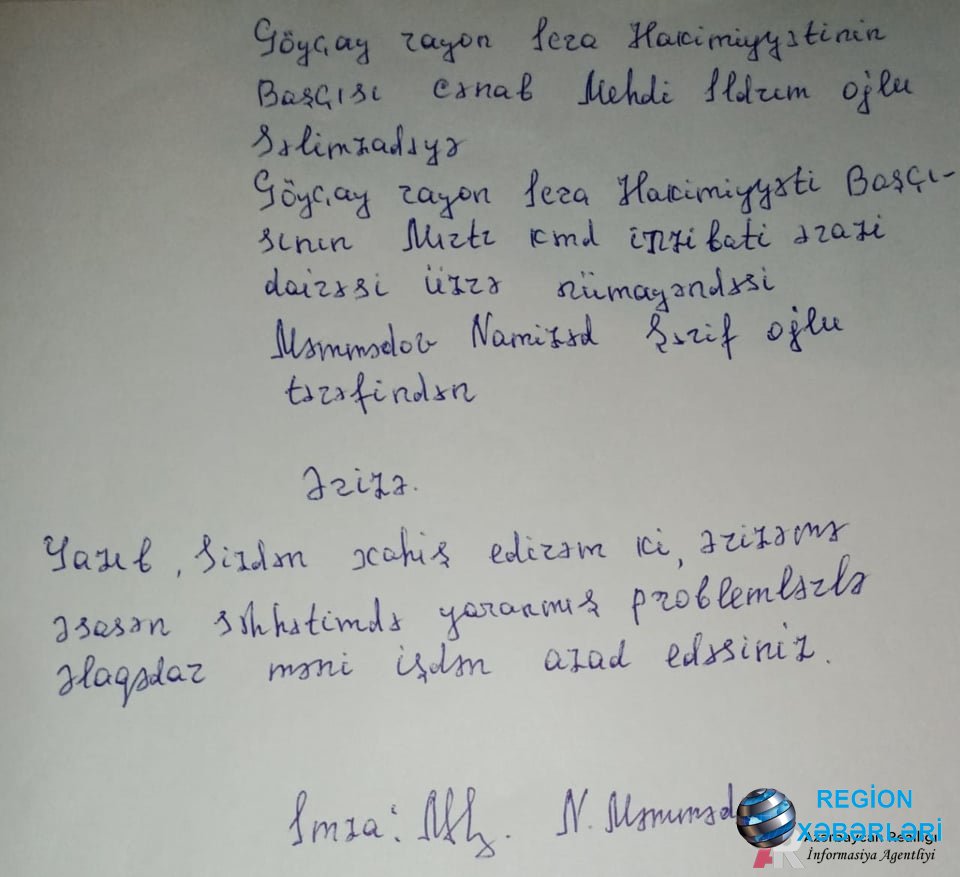 Göyçay rayon İcra Hakimiyyətinin
Başçısı cənab Mehdi Ildrım oğlu
Səlimzadəyə
Göyçay rayon İcra Hakimiyyəti Başçı-
sının kmd inzibati ərazi
dairəsi üzrə nümayəndəsi
Məmmədov Namizəd Şərif oğlu
tərəfindən
Ərizə.
Yazıb, Sizdən xahiş edirəm ki, ərizəmə
əsasən səhhətimdə yaranmış problemlərlə
əlaqədar məni işdən azad edəsiniz.
İmza: N. Məmməd
REGİON
XƏBƏRLƏRİ
Azərbaycan Reallığı
İnformasiya Agentliyi